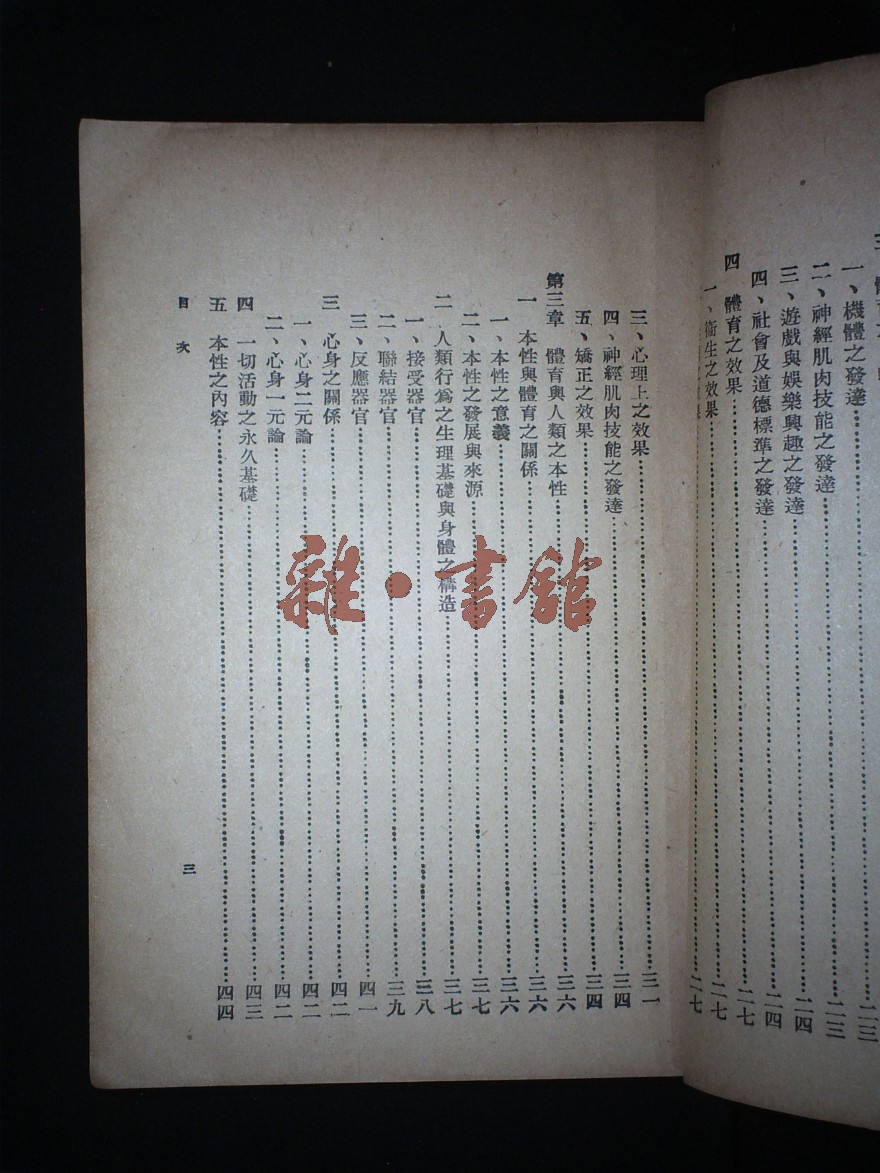 一、機體之發達……二三
二、神經肌肉技能之發達……二三
三、遊戲與娛樂興趣之發達……二四
四、社會及道德標準之發達……二四
四 體育之效果……二七
一、衞生之效果……二七
之效果……二七
三、心理上之效果……三一
四、神經肌肉技能之發達……三四
五、矯正之效果……三四
第三章 體育與人類之本性……三六
一 本性與體育之關係……三六
一、本性之意義……三六
二、本性之發展與來源……三七
二 人類行爲之生理基礎與身體之構造……三七
一、接受器官……三八
二、聯結器官……三九
三、反應器官……四一
三 心身之關係……四二
一、心身二元論……四二
二、心身一元論……四二
四 一切活動之永久基礎……四三
五 本性之內容……四四
目次
三
雜·書館